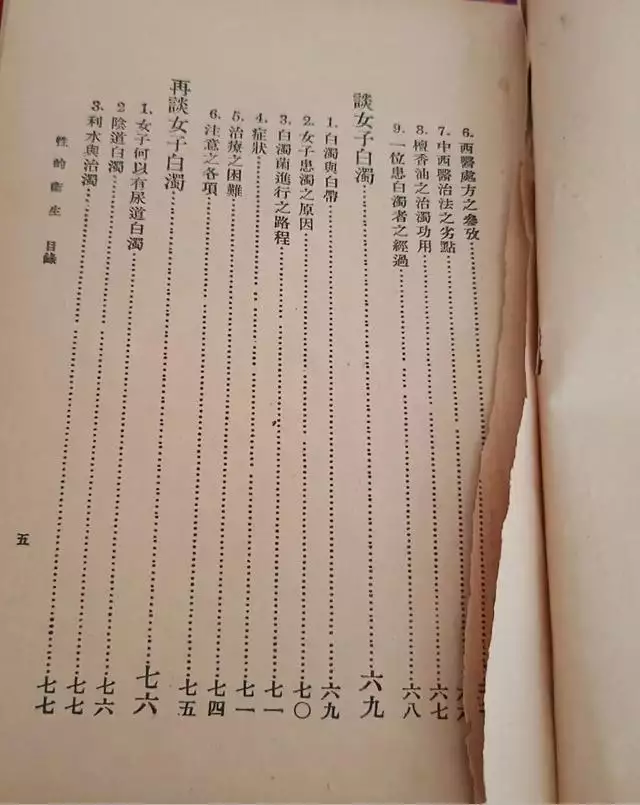 6. 西醫處方之參攷
7. 中西醫治法之劣點……六六
8. 檀香油之治濁功用……六七
9. 一位患白濁者之經過……六八
談女子白濁……六九
1. 白濁與白帶……六九
2. 女子患濁之原因……七〇
3. 白濁菌進行之路程……七一
4. 症狀……七一
5. 治療之困難……七四
6. 注意之各項……七五
再談女子白濁……七六
1. 女子何以有尿道白濁……七六
2 陰道白濁……七七
3. 利水與治濁……七七
性的衞生 目錄
五